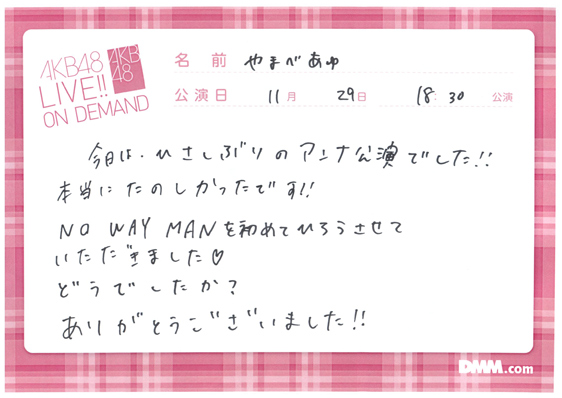 AKB48
LIVE!!
ON DEMAND
AKB
48
名前 やまべあゆ
公演日 11月 29日 18:30 公演
今日は、ひさしぶりのアンナ公演でした!!
本当にたのしかったです!!
NO WAY MANを初めてひろうさせて
いただきました♡
どうでしたか?
ありがとうございました!!
DMM.com